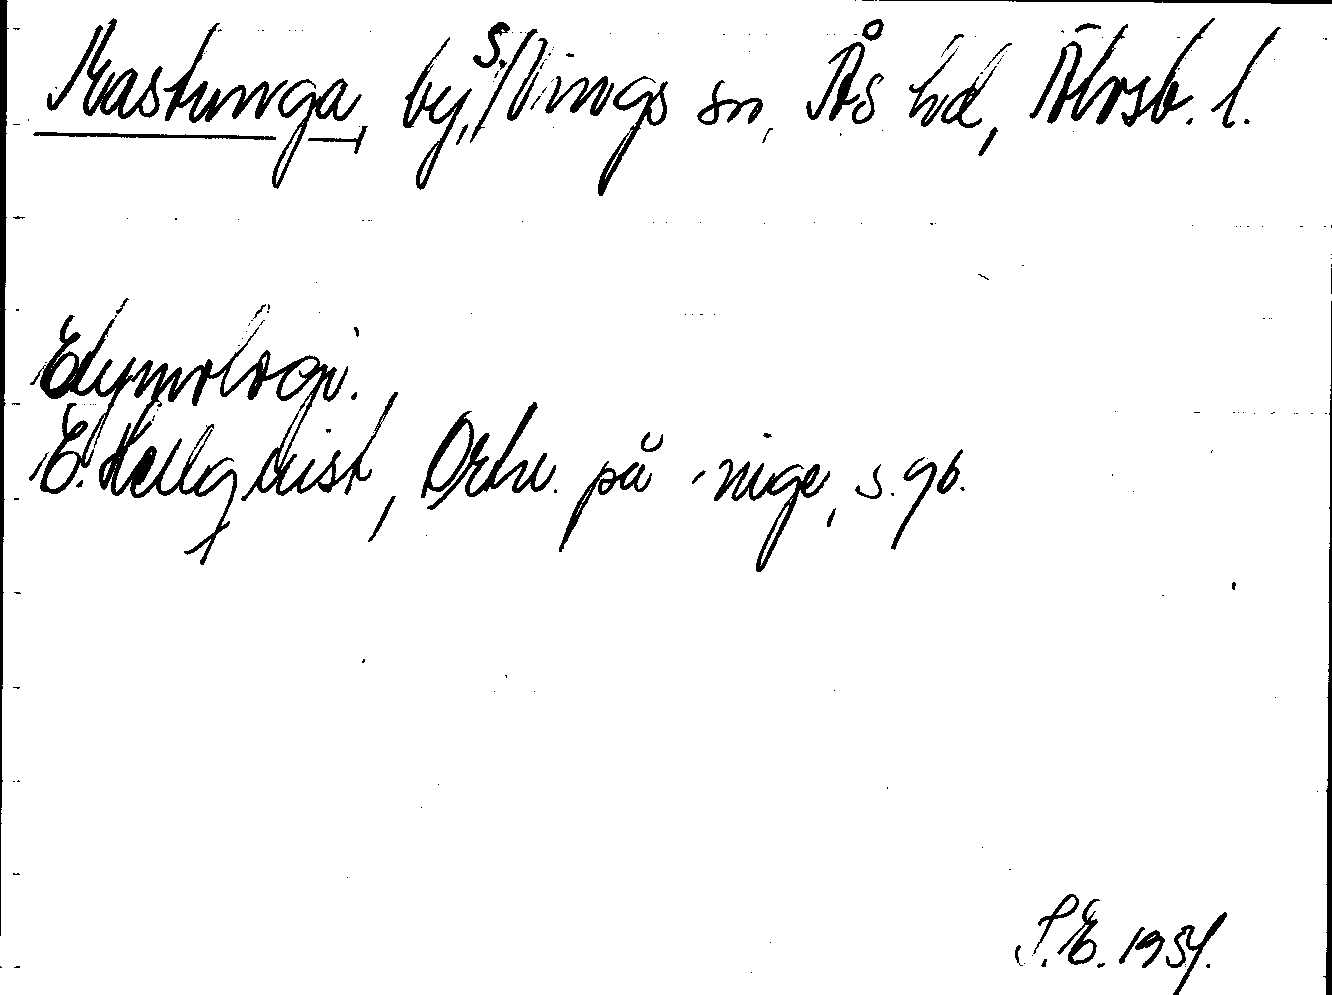 Kastunga, by, S. Vings sn, Ås hd, Älvsb. l.
Etymologi.
E. Hellquist, Ortn. på -inge, s. 96.
S. E. 1954.